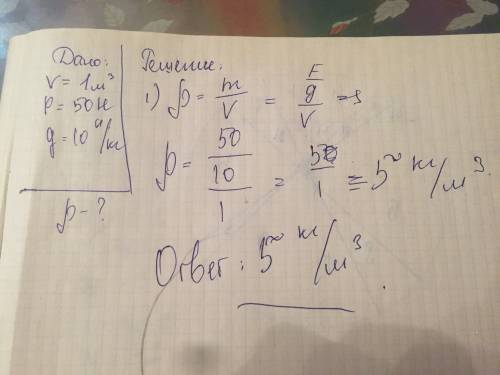 Дано:
V = 1м³
P = 50Н
g = 10 Н/кг
ρ - ?
Решение:
1) ρ = m/V = F/g/V =>
ρ = 50/10/1 = 5/1 = 5 кг/м³
Ответ: 5 кг/м³.